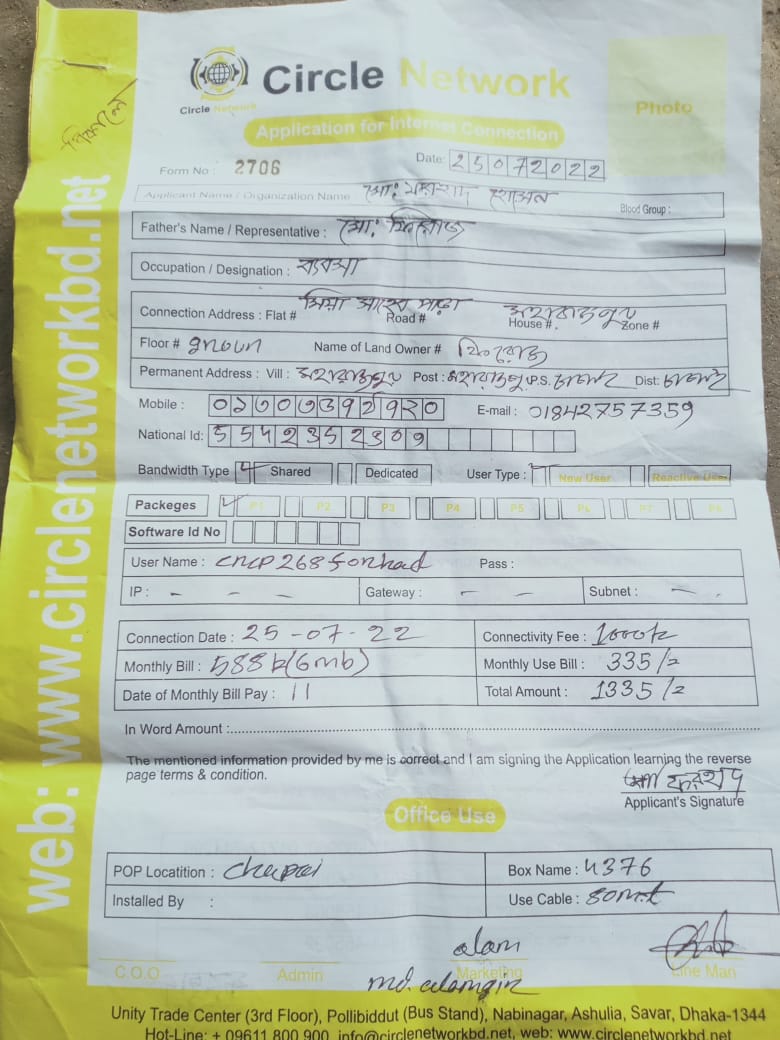 বিকালে
Circle Network
Circle Network
Photo
Application for Internet Connection
Form No : 2706
Date: 25072022
Applicant Name / Organization Name মো: ফরহাদ হোসেন
Blood Group :
Father's Name / Representative : মো: ফিরোজ
Occupation / Designation : ব্যবসা
Connection Address : Flat # মিয়া সাহেব পাড়া Road # House #. মহারাজপুর Zone #
Floor # Name of Land Owner # ফিরোজ
Permanent Address : Vill : মহারাজপুর Post : মহারাজপুর P.S. Dist:
Mobile :
E-mail : 01842757359
National Id: 5542352309
Bandwidth Type Shared Dedicated User Type : New User Reactive User
Packeges P1 P2 P3 P4 P5 P6 P7 P8
Software Id No
User Name : Pass :
IP : - - - Gateway : - - Subnet : -
Connection Date : 25-07-22 Connectivity Fee : 1000tk
Monthly Bill : 588tk(6mb) Monthly Use Bill : 335/=
Date of Monthly Bill Pay : 11 Total Amount : 1335/=
In Word Amount :
The mentioned information provided by me is correct and I am signing the Application learning the reverse
page terms & condition.
মো: ফরহাদ
Applicant's Signature
Office Use
POP Locatition : Chapai Box Name : 4376
Installed By : Use Cable :
alam
C.O.O Admin Marketing Line Man
md. alamgir
Unity Trade Center (3rd Floor), Pollibiddut (Bus Stand), Nabinagar, Ashulia, Savar, Dhaka-1344
Hot-Line: + 09611 800 900, info@circlenetworkbd.net, web: www.circlenetworkbd.net
web: www.circlenetworkbd.net